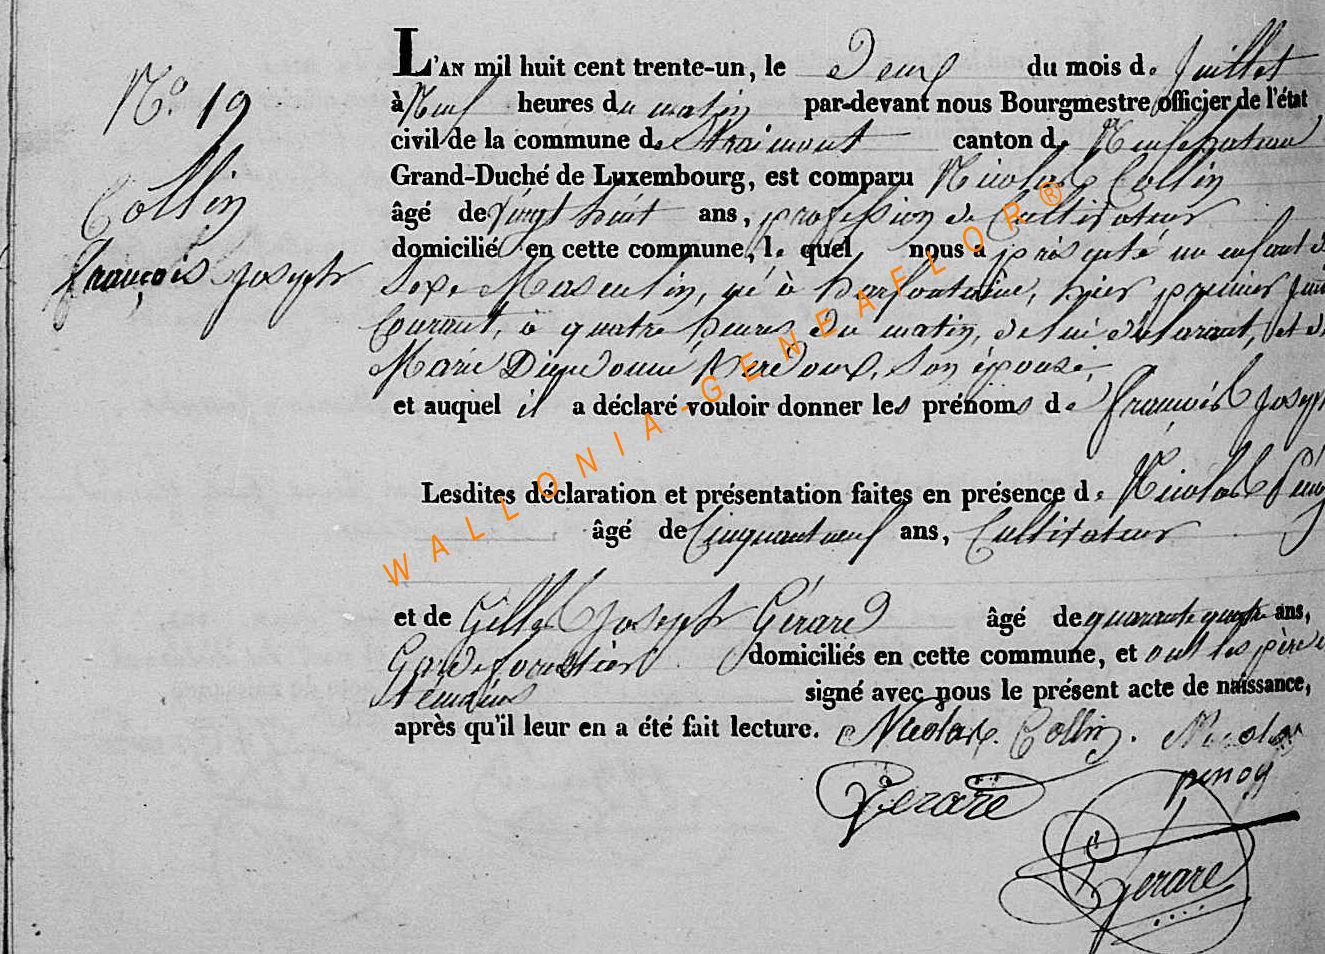 N.o 19
Collin
françois Joseph
L'AN mil huit cent trente-un, le Deux du mois de Juillet
à Neuf heures du matin par-devant nous Bourgmestre officier de l'état
civil de la commune de Straimont canton de Neufchateau
Grand-Duché de Luxembourg, est comparu Nicolas Collin
âgé de vingt huit ans, profession de Cultivateur
domicilié en cette commune, le quel nous a présenté un enfant d
Sexe Masculin, né à harfontaine, hier premier
Courant, à quatre heures du matin, de lui déclarant, et d
Marie Dieudonné, Son épouse,
et auquel il a déclaré vouloir donner les prénoms de françois Joseph
Lesdites déclaration et présentation faites en présence de Nicolas
âgé de Cinquant neuf ans, Cultivateur
et de Gilles Joseph Gérard âgé de quarante quatre ans,
Garde forestier domiciliés en cette commune, et ont les père
témoins signé avec nous le présent acte de naissance,
après qu'il leur en a été fait lecture. Nicolas Collin. Nicolas
pinog
Gerard
Gerard
WALLONIA-GENEAFLOR®